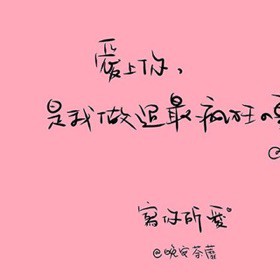 爱上你，
是我做过最疯狂的
@
寫你所愛
@晚安茶蕾